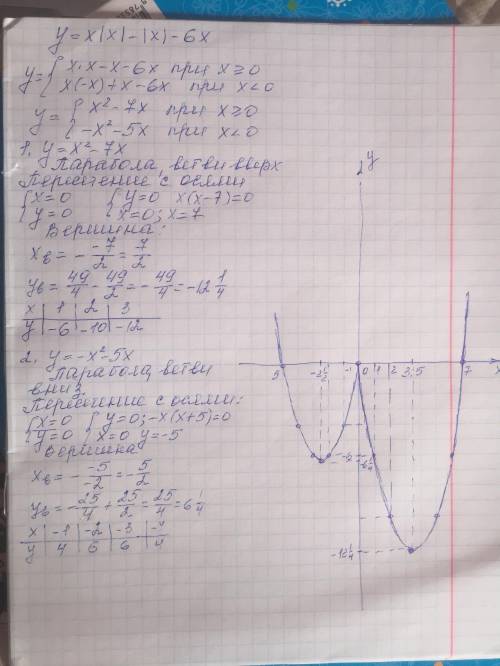 y = x|x| - |x| - 6x
y = { x·x - x - 6x при x ≥ 0
x(-x) + x - 6x при x < 0
y = { x² - 7x при x ≥ 0
-x² - 5x при x < 0
1. y = x² - 7x
Парабола, ветви вверх
Пересечение с осями
{ x = 0 { y = 0 x(x-7) = 0
y = 0 x = 0; x = 7
Вершина:
xв = - -7/2 = 7/2
yв = 49/4 - 49/2 = - 49/4 = -12 1/4
x | 1 | 2 | 3
y | -6 | -10 | -12
2. y = -x² - 5x
Парабола, ветви
вниз
Пересечение с осями:
{ x = 0 { y = 0; -x(x+5) = 0
y = 0 x = 0 y = -5
Вершина
xв = - -5/-2 = - 5/2
yв = - 25/4 + 25/2 = 25/4 = 6 1/4
x | -1 | -2 | -3 | -4
y | 4 | 6 | 6 | 4
y
5 -2 1/2 -1 0 1 2 3,5 7 x
-6 1/4
-12 1/4